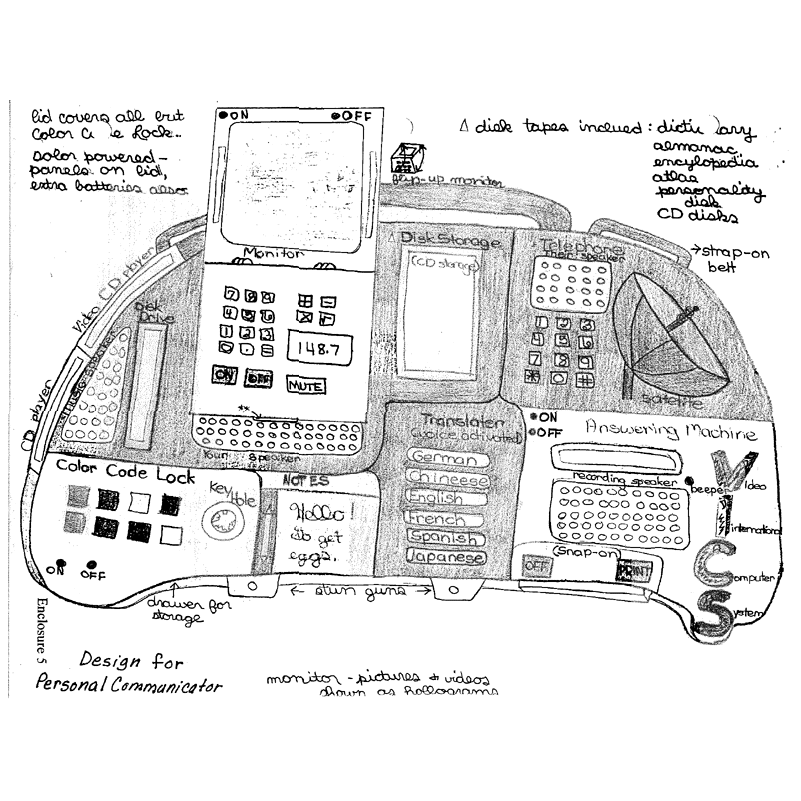 lid covers all but
color code lock..
solar powered-
panels on lid,
extra batteries also
● ON ● OFF
Monitor
flip-up monitor
Δ disk tapes inclued: dictionary
almanac
encylopedia
atlas
personality
disk
CD disks
→ strap-on
belt
Video CD player
CD player
Disk
Drive
music speaker
7 8 9 + -
4 5 6 × ÷
1 2 3
0 . =
148.7
ON OFF MUTE
**
Your speaker
Δ Disk Storage
(CD storage)
Telephone
Their speaker
1 2 3
4 5 6
7 8 9
* 0 #
Satelite
Translater
(voice activated)
German
Chineese
English
French
Spanish
Japanese
ON
OFF
Answering Machine
recording speaker
beeper
(snap-on)
OFF PRINT
Video
International
Computer
System
Color Code Lock
Key
Hole
ON OFF
NOTES
Hello!
Do get
eggs.
drawer for
storage
← stun guns →
Enclosure 5
Design for
Personal Communicator
monitor - pictures & videos
shown as hollograms